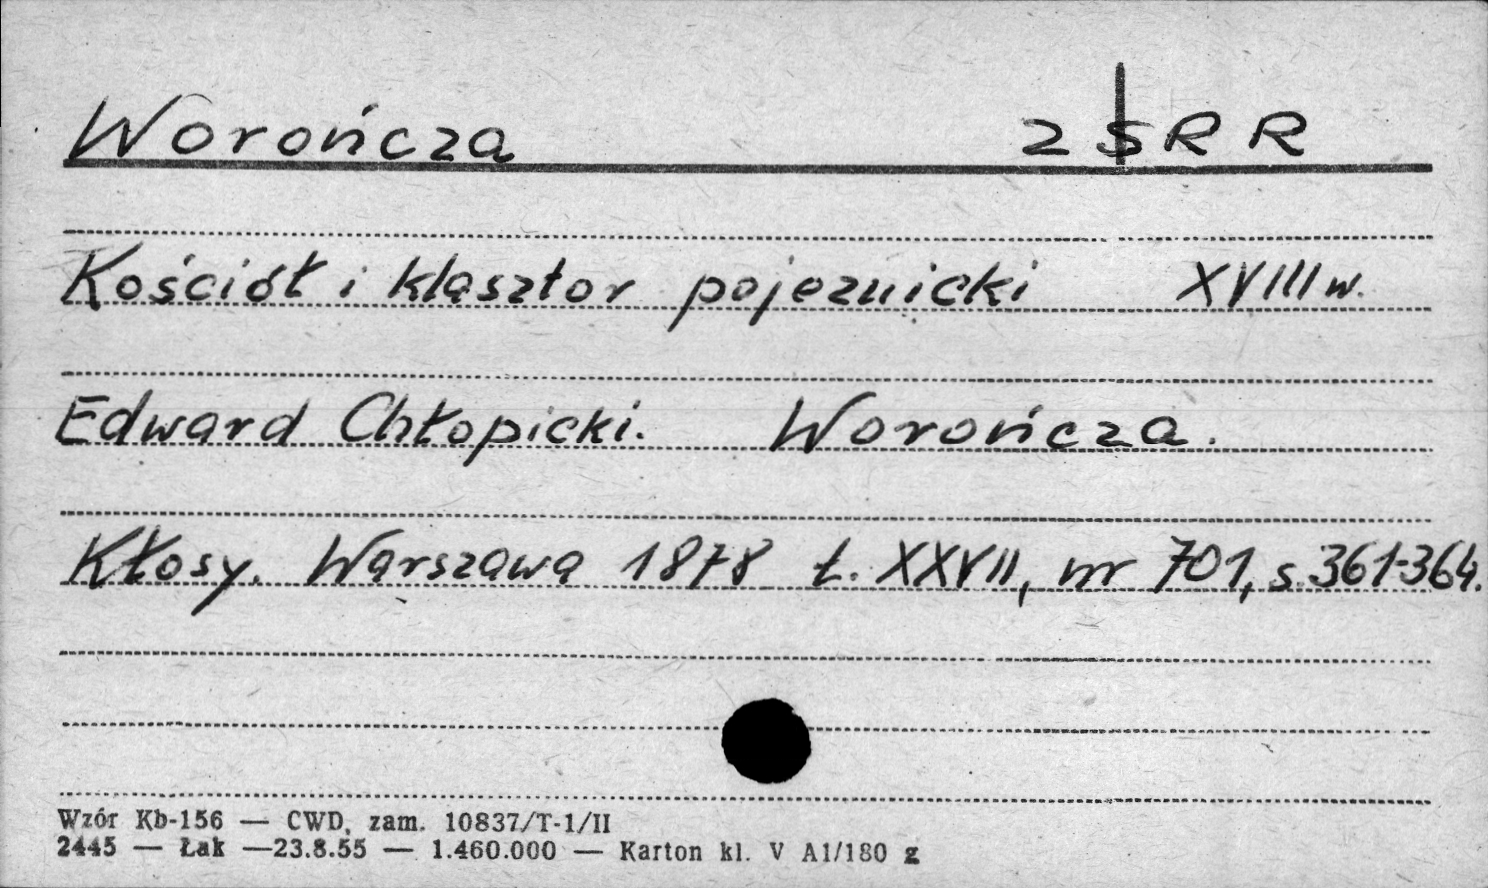 Worończa ZSRR
Kościół i klasztor pojezuicki XVIII w.
Edward Chłopicki. Worończa.
Kłosy. Warszawa 1878 t. XXVII, nr 701, s. 361-364.
Wzór Kb-156 — CWD, zam. 10837/T-1/II
2445 — Łak —23.8.55 — 1.460.000 — Karton kl. V A1/180 g